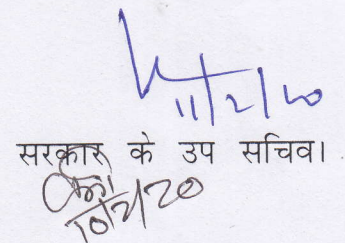 11/2/20
सरकार के उप सचिव।
10/2/20